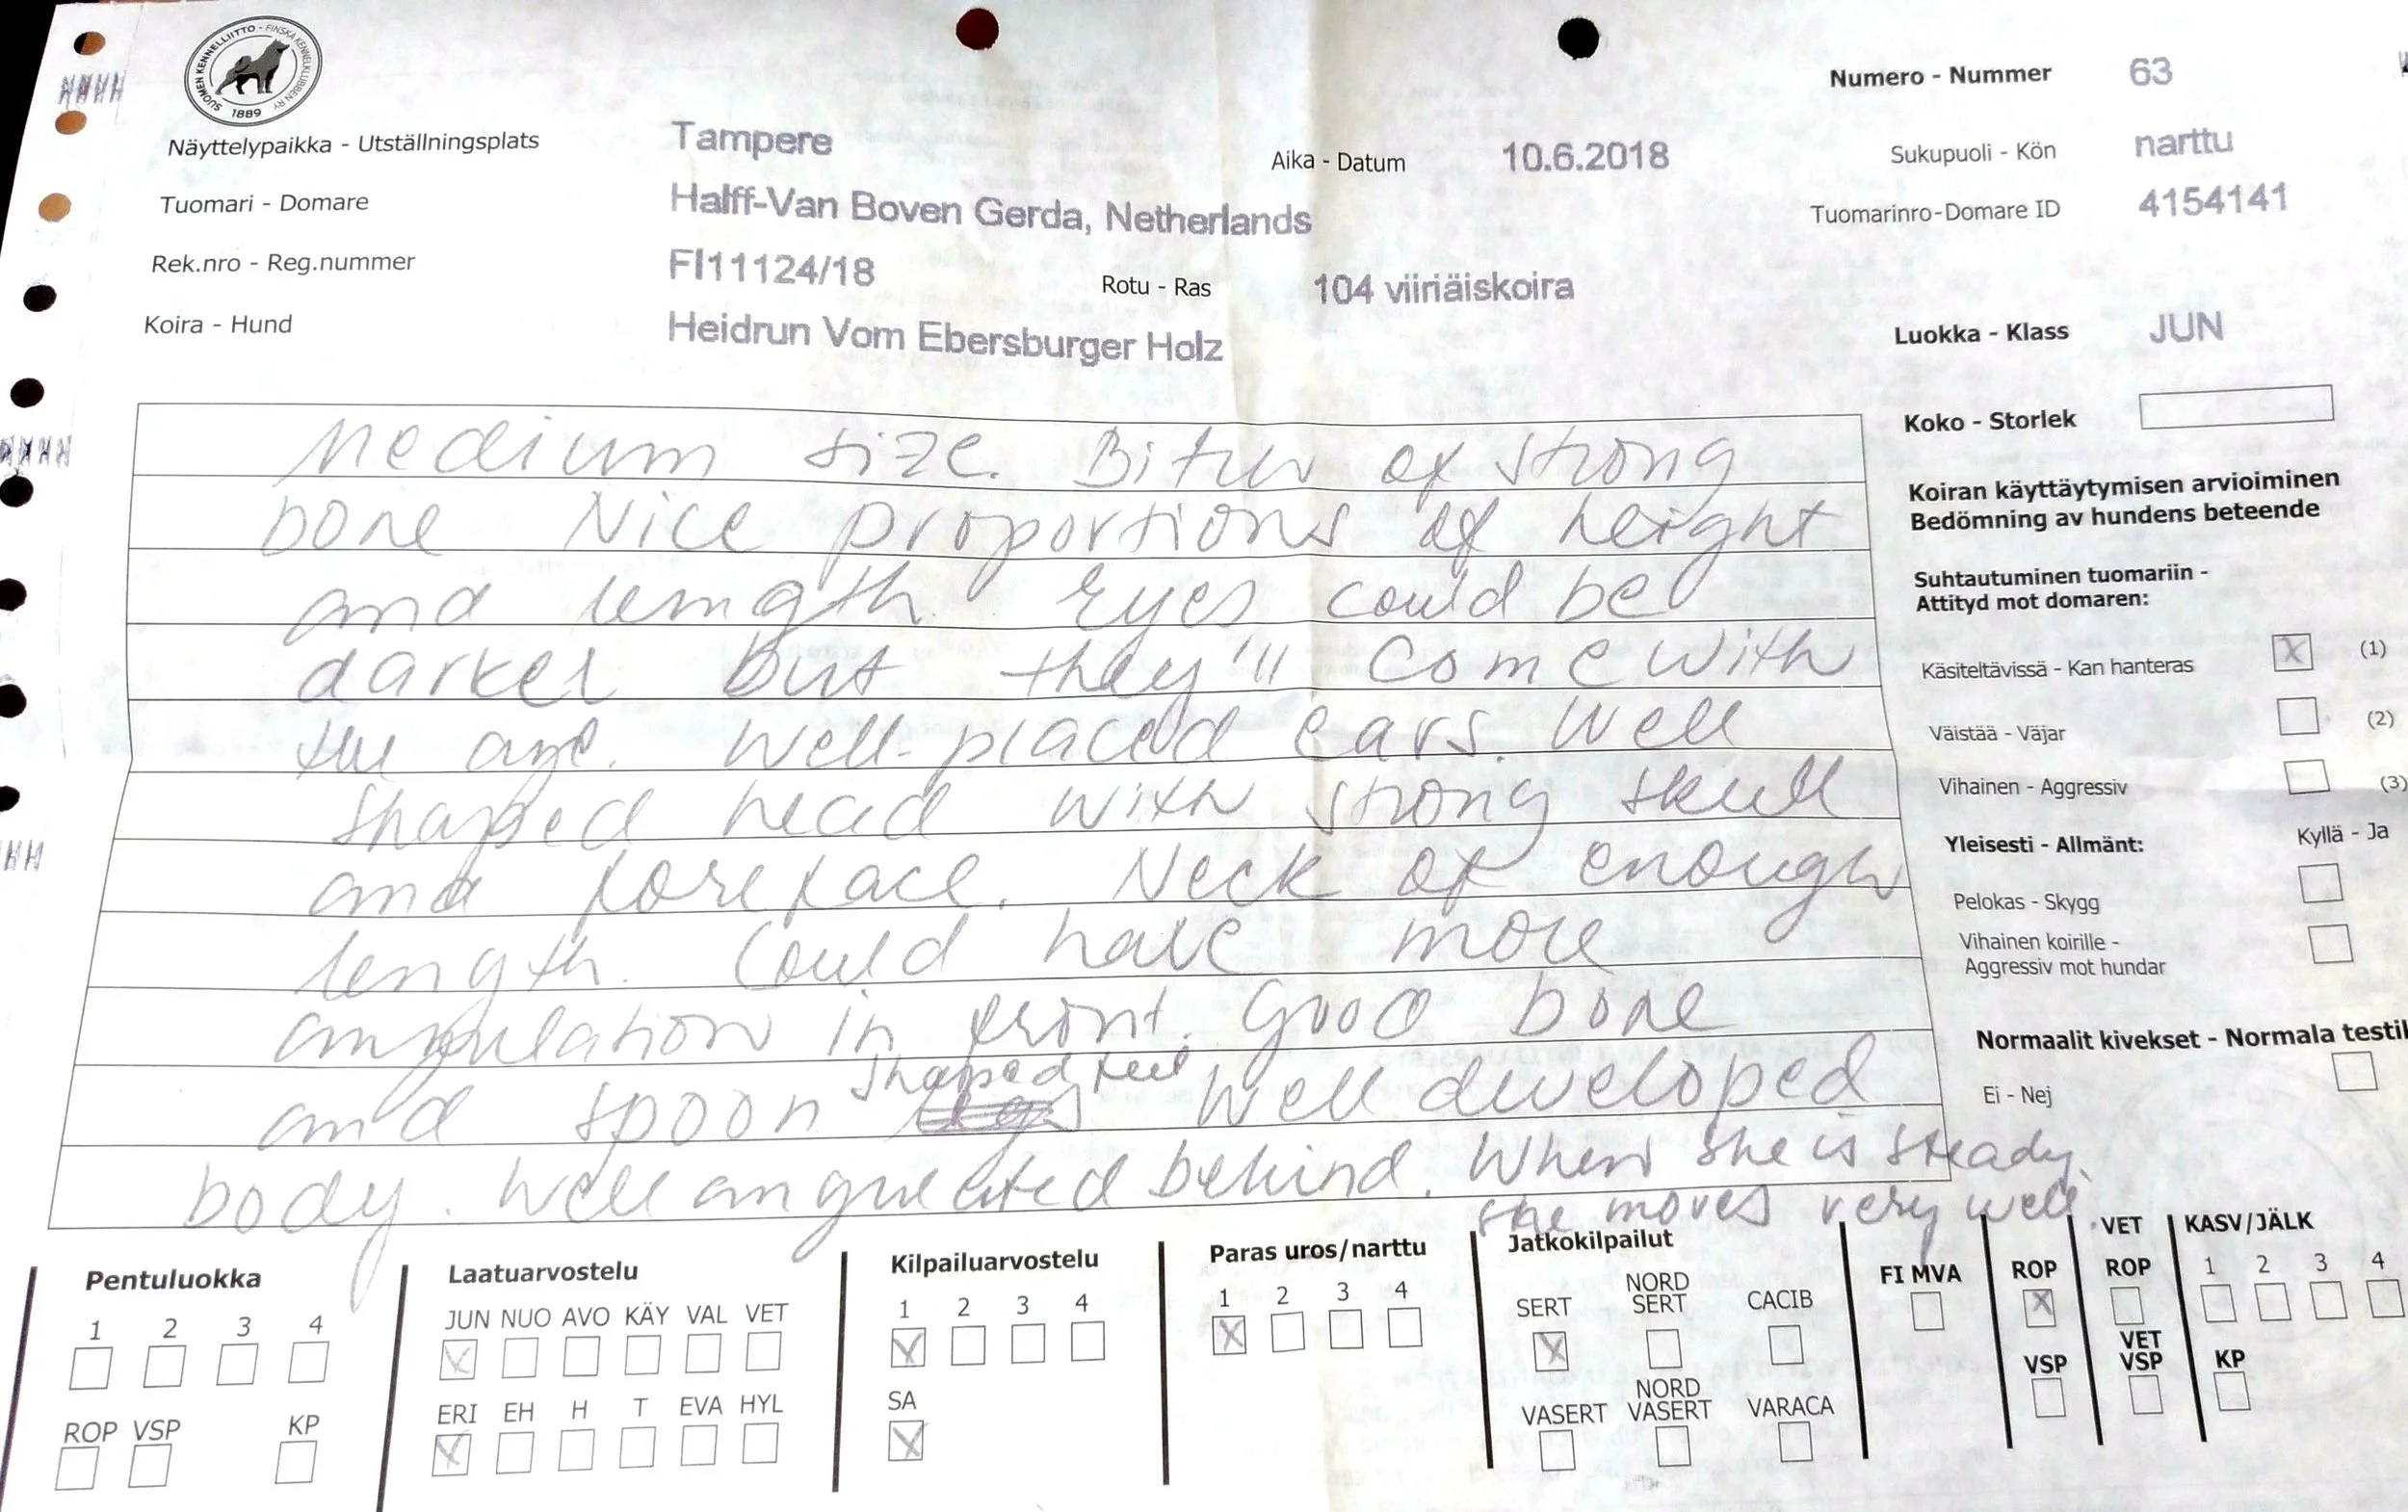 SUOMEN KENNELLIITTO - FINSKA KENNELKLUBBEN RY
1889
Numero - Nummer 63
Näyttelypaikka - Utställningsplats Tampere Aika - Datum 10.6.2018 Sukupuoli - Kön narttu
Tuomari - Domare Halff-Van Boven Gerda, Netherlands Tuomarinro-Domare ID 4154141
Rek.nro - Reg.nummer FI11124/18 Rotu - Ras 104 viiriäiskoira
Koira - Hund Heidrun Vom Ebersburger Holz Luokka - Klass JUN
Medium size. Bitch of strong
bone Nice proportions of height
and length. Eyes could be
darker but they'll come with
the age. Well-placed ears. Well
shaped head with strong skull
and foreface. Neck of enough
length. Could have more
angulation in front. Good bone
and spoon shaped feet Well developed
body. Well angulated behind. When she is steady,
she moves very well.
Koko - Storlek
Koiran käyttäytymisen arvioiminen
Bedömning av hundens beteende
Suhtautuminen tuomariin -
Attityd mot domaren:
Käsiteltävissä - Kan hanteras X (1)
Väistää - Väjar (2)
Vihainen - Aggressiv (3)
Yleisesti - Allmänt: Kyllä - Ja
Pelokas - Skygg
Vihainen koirille -
Aggressiv mot hundar
Normaalit kivekset - Normala testik
Ei - Nej
Pentuluokka
1 2 3 4
ROP VSP KP
Laatuarvostelu
JUN NUO AVO KÄY VAL VET
X
ERI EH H T EVA HYL
X
Kilpailuarvostelu
1 2 3 4
X
SA
X
Paras uros/narttu
1 2 3 4
X
Jatkokilpailut
SERT NORD SERT CACIB
X
VASERT NORD VASERT VARACA
FI MVA
ROP
X
VSP
VET
ROP
VET
VSP
KASV/JÄLK
1 2 3 4
KP